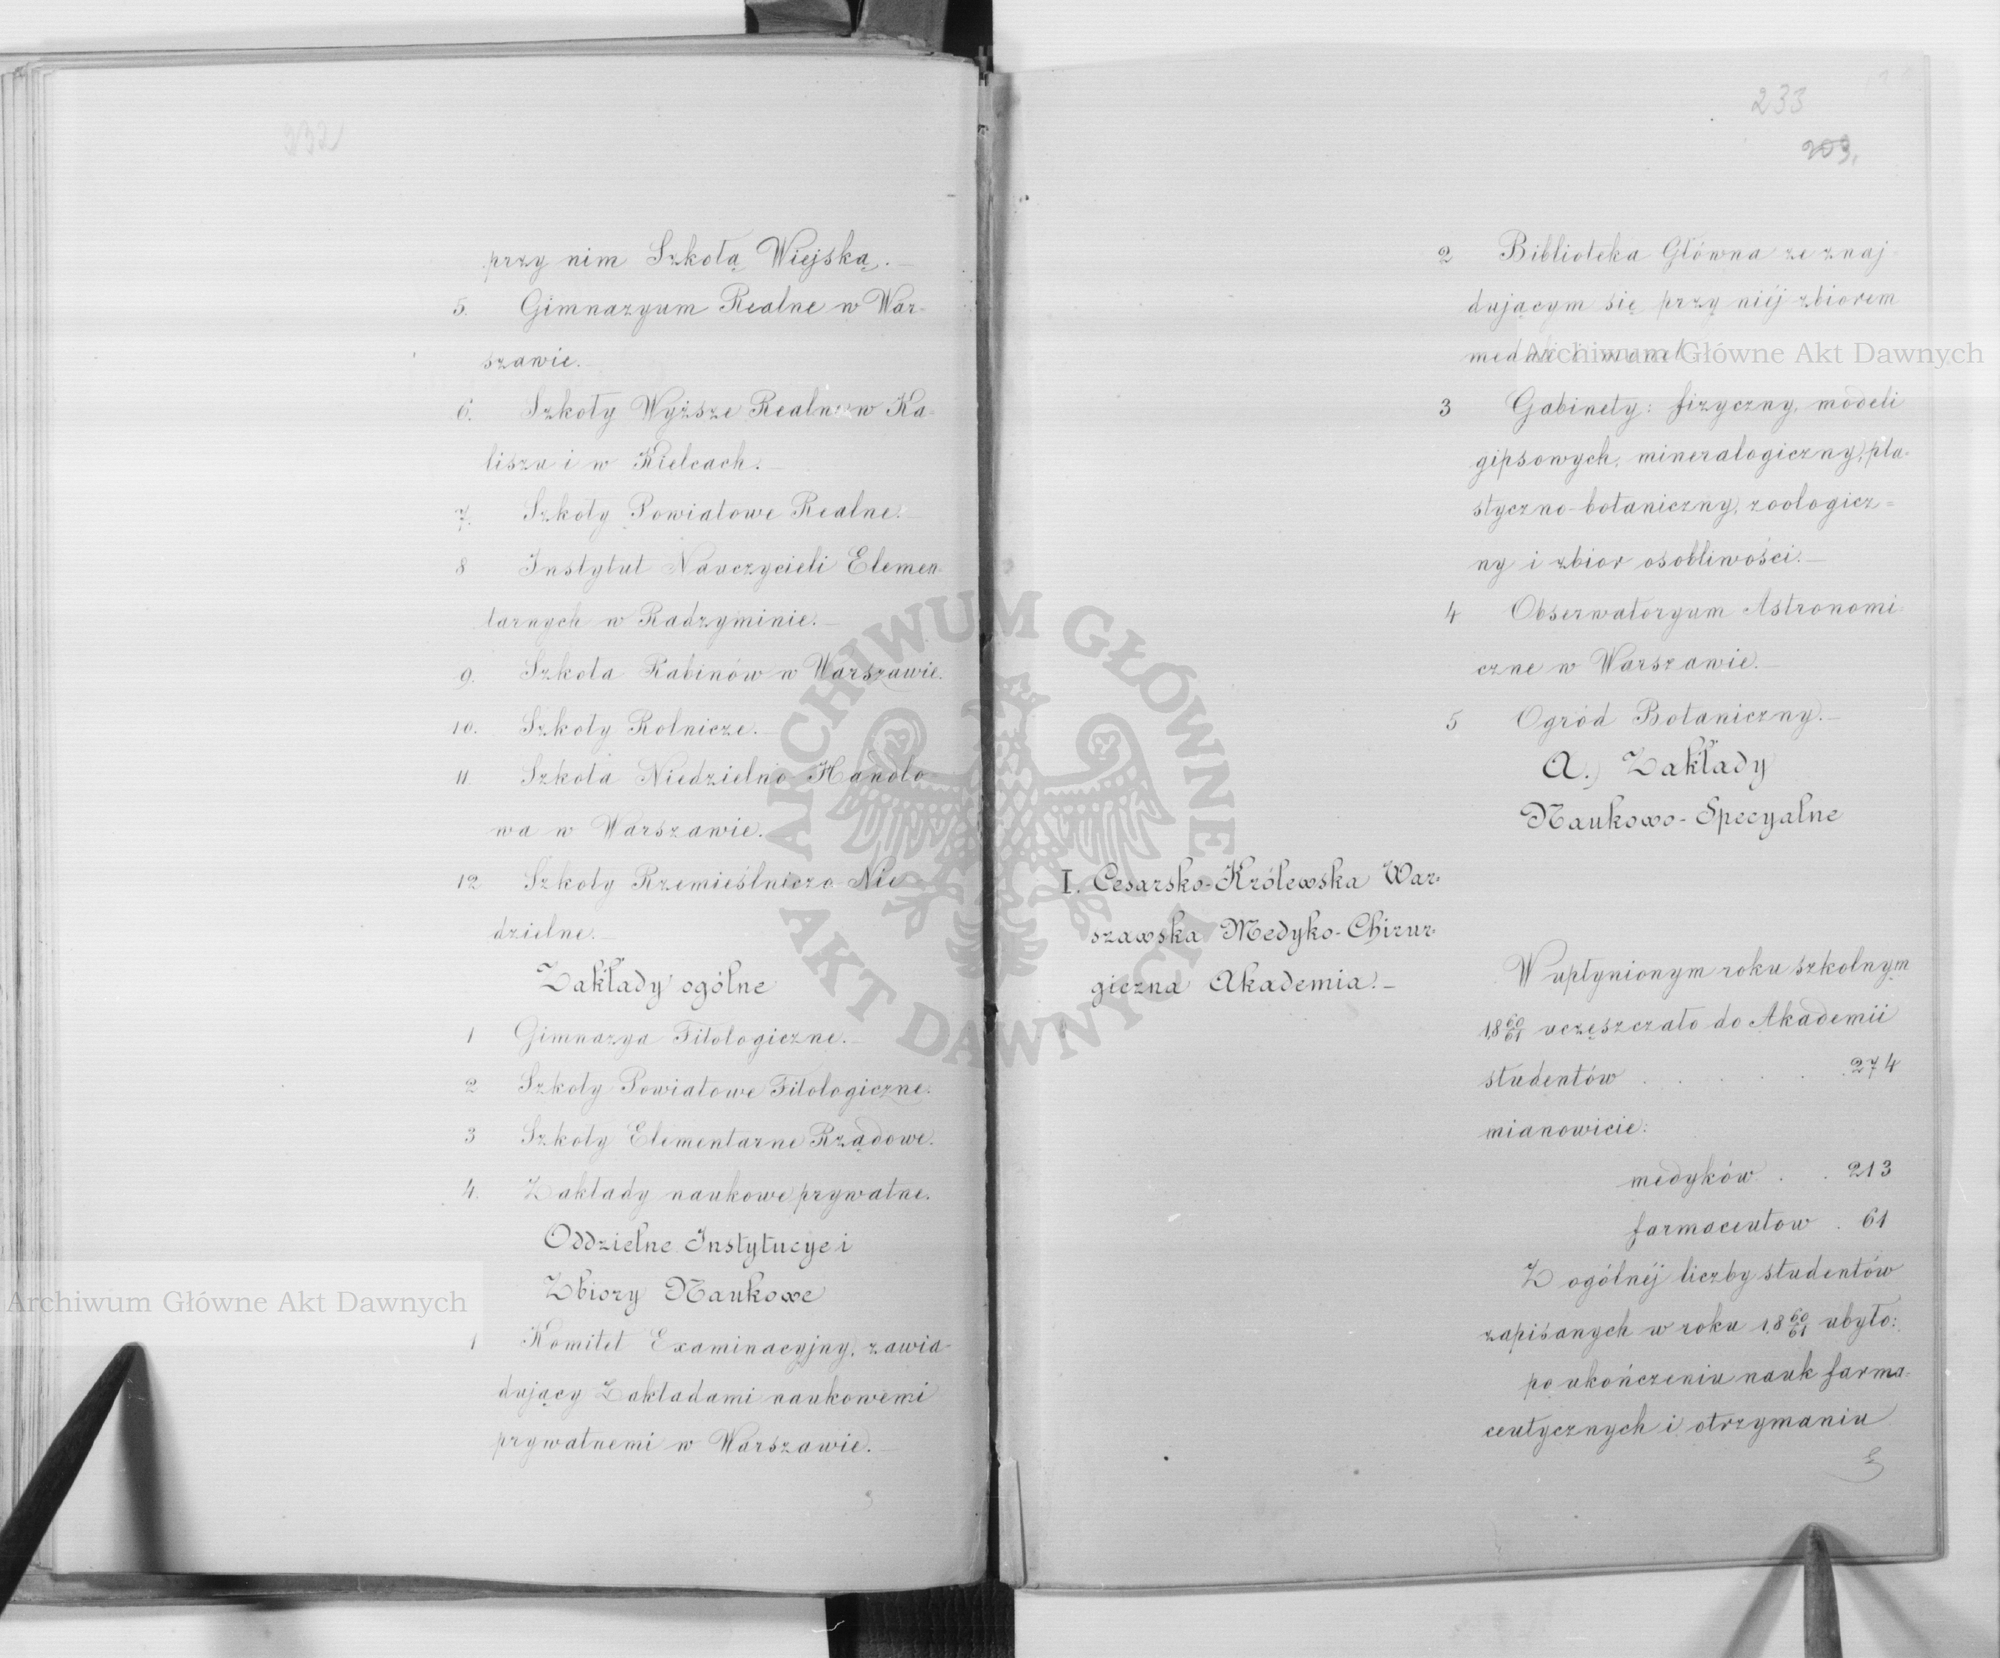 232
przy nim Szkołą Wiejską.
5. Gimnazyum Realne w War-
szawie.
6. Szkoły Wyższe Realne w Ka-
liszu i w Kielcach.
7. Szkoły Powiatowe Realne.
8 Instytut Nauczycieli Elemen-
tarnych w Radzyminie.
9. Szkoła Rabinów w Warszawie.
10. Szkoły Rolnicze.
11 Szkoła Niedzielno-Handlo-
wa w Warszawie.
12 Szkoły Rzemieślniczo-Nie-
dzielne.
Zakłady ogólne
1 Gimnazya Filologiczne.
2 Szkoły Powiatowe Filologiczne.
3 Szkoły Elementarne Rządowe.
4. Zakłady naukowe prywatne.
Oddzielne Instytucye i
Zbiory Naukowe
1 Komitet Examinacyjny, zawia-
dujący Zakładami naukowemi
prywatnemi w Warszawie.
233
203.
2 Biblioteka Główna ze znaj-
dującym się przy niéj zbiorem
medali i monet
3 Gabinety: fizyczny, modeli
gipsowych, mineralogiczny, pla-
styczno-botaniczny, zoologicz=
ny i zbior osobliwości.
4 Obserwatoryum Astronomi
czne w Warszawie.
5 Ogród Botaniczny.
A.) Zakłady
Naukowo-Specyalne
I. Cesarsko-Królewska War-
szawska Medyko-Chirur-
giczna Akademia.
W upłynionym roku szkolnym
18 60/61 uczęszczało do Akademii
studentów . . . . . . 274
mianowicie:
medyków . . 213
farmaceutow . 61
Z ogólnéj liczby studentów
zapisanych w roku 18 60/61 ubyło:
po ukończeniu nauk farma-
ceutycznych i otrzymaniu
Archiwum Główne Akt Dawnych
Archiwum Główne Akt Dawnych
ARCHIWUM GŁÓWNE AKT DAWNYCH